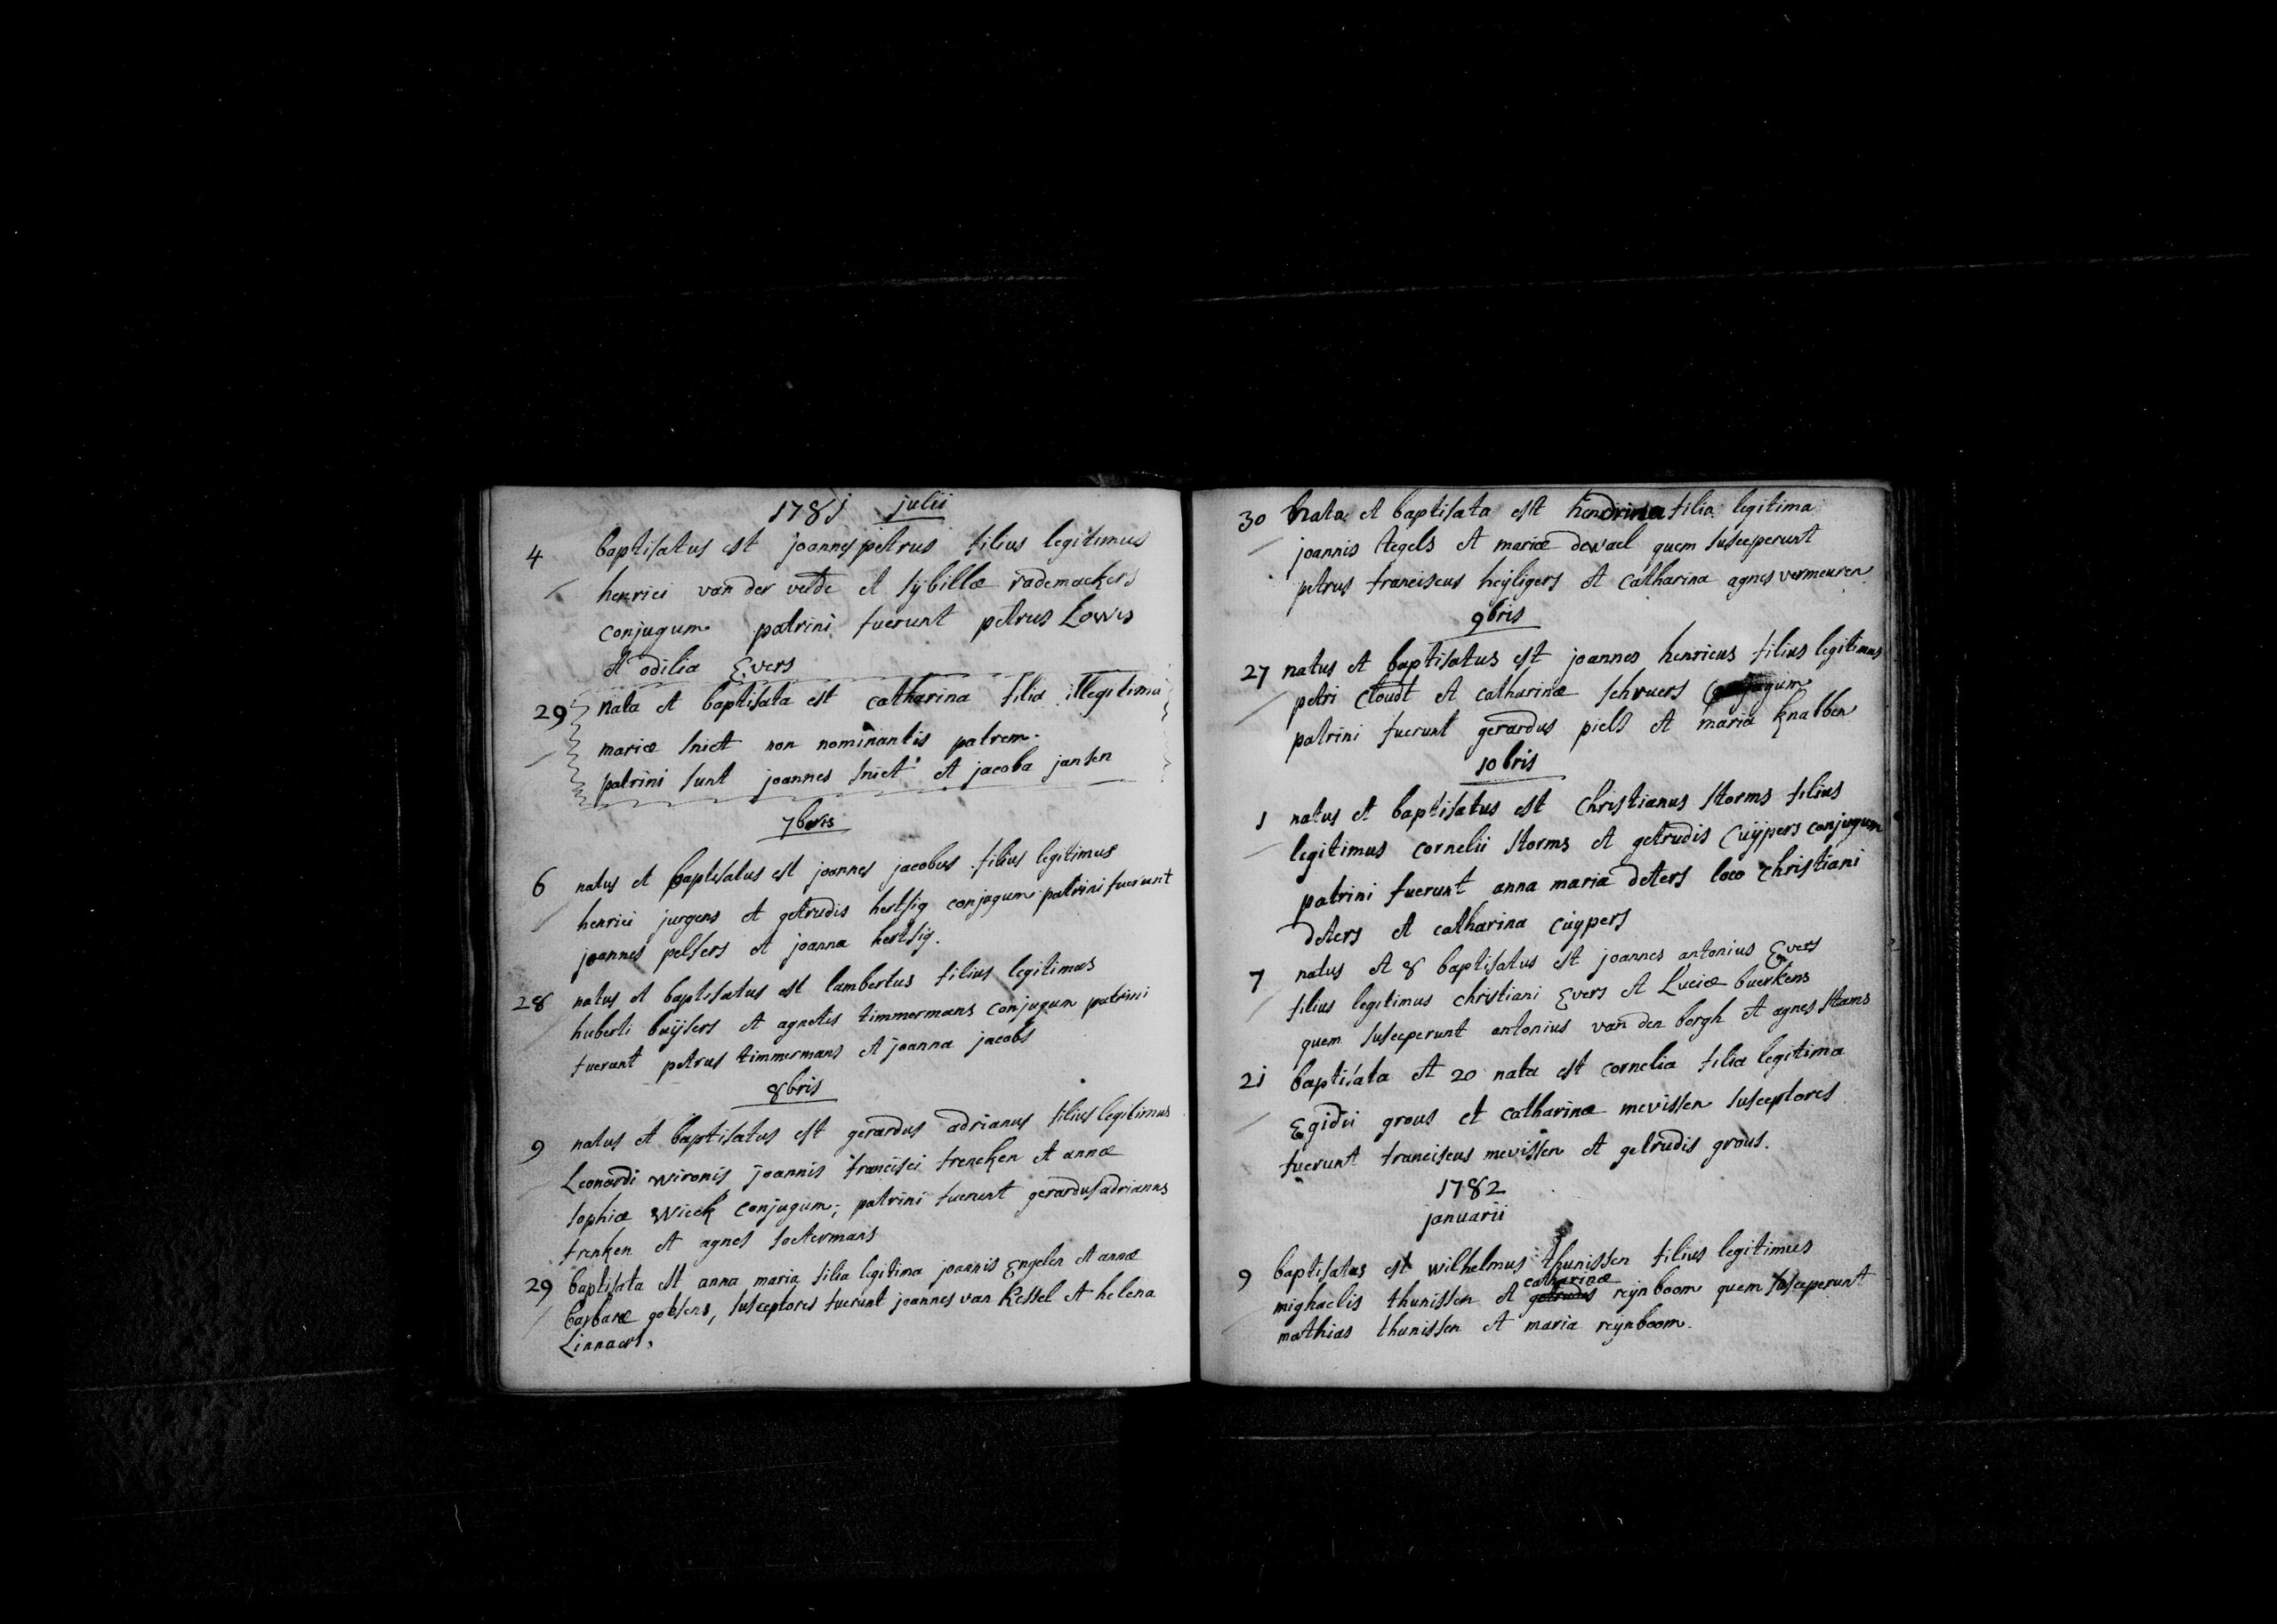 1781 julii
4 baptisatus est joannes petrus filius legitimus
henrici van der velde et sybillæ rademackers
conjugum patrini fuerunt petrus Lowis
et odilia Evers
29 nata et baptisata est catharina filia illegitima
mariæ sniet non nominantis patrem.
patrini sunt joannes sniet et jacoba jansen
7bris
6 natus et baptisatus est joannes jacobus filius legitimus
henrici jurgens et getrudis hertsig conjugum patrini fuerunt
joannes pelsers et joanna hertsig.
28 natus et baptisatus est lambertus filius legitimus
huberti buijsers et agnetis timmermans conjugum patrini
fuerunt petrus timmermans et joanna jacobs
8bris
9 natus et baptisatus est gerardus adrianus filius legitimus
Leonardi wironis joannis francisci frencken et annæ
sophiæ Wieck conjugum; patrini fuerunt gerardus adrianus
frenken et agnes soetermans
29 baptisata est anna maria filia legitima joannis Engelen et annæ
barbaræ gotsens, susceptores fuerunt joannes van Kessel et helena
Linnaerts
30 nata et baptisata est hendrina filia legitima
joannis tegels et mariæ dewael quem susceperunt
petrus franciscus heyligers et catharina agnes vermeuren
9bris
27 natus et baptisatus est joannes henricus filius legitimus
petri cloudt et catharinæ schruers conjugum
patrini fuerunt gerardus piels et maria knabben
10bris
1 natus et baptisatus est christianus storms filius
legitimus cornelii storms et getrudis Cuijpers conjugum
patrini fuerunt anna maria deters loco christiani
deters et catharina cuypers
7 natus et 8 baptisatus est joannes antonius Evers
filius legitimus christiani Evers et Luciæ buerkens
quem susceperunt antonius van den bergh et agnes stams
21 baptisata et 20 nata est cornelia filia legitima
Egidii grous et catharinæ mevissen susceptores
fuerunt franciscus mevissen et getrudis grous.
1782
januarii
9 baptisatus est wilhelmus thunissen filius legitimus
catharinæ
mighaelis thunissen et getrudis reynboom quem susceperunt
mathias thunissen et maria reynboom.